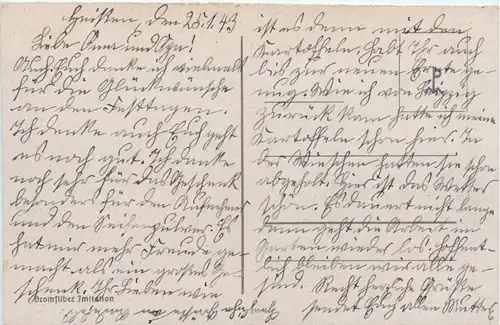 den 25.1.43
Liebe Oma und Opa!
Auch Euch danke ich vielmals
für die Glückwünsche
an den Festtagen.
Ich denke auch Euch geht
es noch gut. Ich danke
noch sehr für das Geschenk
besonders für den
und den Seifenpulver. Es
hat mir mehr Freude ge-
macht als ein großes Ge-
schenk. Ihr Lieben wie
Bromsilber Imitation
ist es denn mit den
Kartoffeln. Habt Ihr auch
bis zur neuen Ernte ge-
nug. Wie ich von
zurück kam hatte ich meine
Kartoffeln schon hier. In
der hatten sie schon
abgeholt. Hier ist das Wetter
schön. Es dauert nicht lange
dann geht die Arbeit im
Garten wieder los. Hoffent-
lich bleiben wir alle ge-
sund. Recht herzliche Grüße
sendet Euch allen